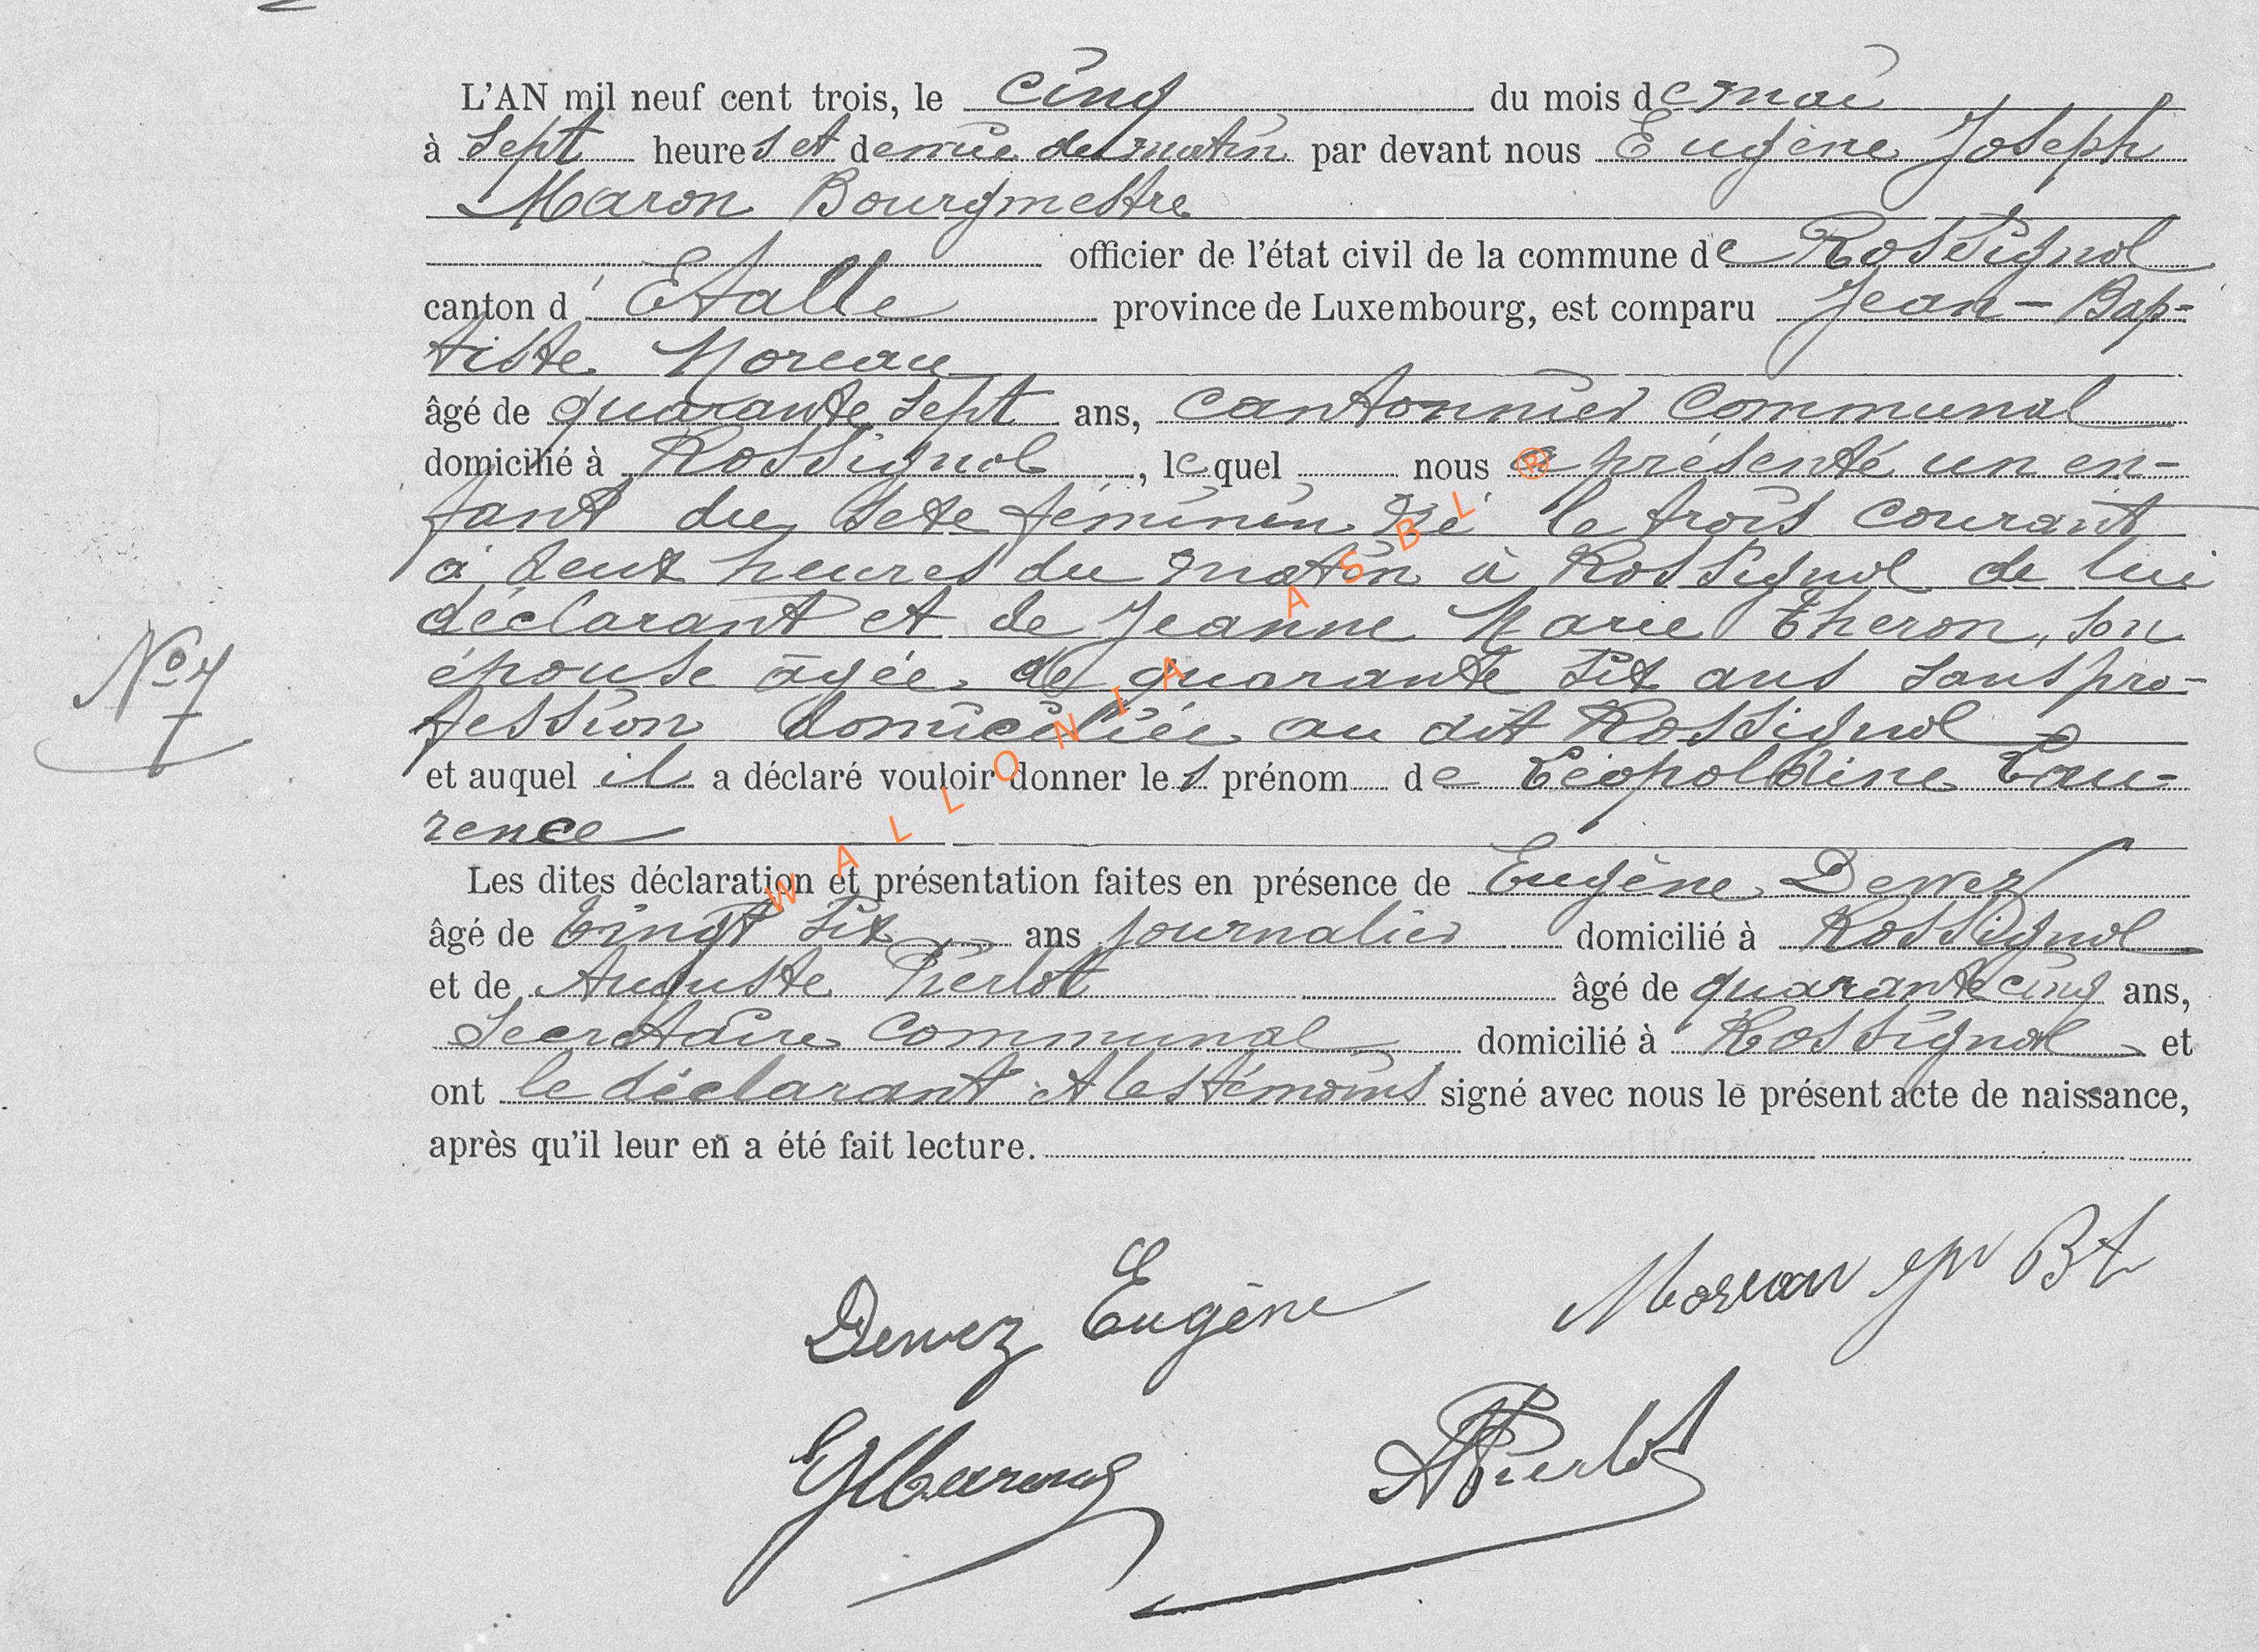 L'AN mil neuf cent trois, le cinq du mois de mai
à sept heures et demie du matin par devant nous Eugène Joseph
Maron Bourgmestre
officier de l'état civil de la commune de Rossignol
canton d'Etalle province de Luxembourg, est comparu Jean-Bap-
tiste Moreau
âgé de quarante sept ans, cantonnier communal
domicilié à Rossignol, lequel nous a présenté un en-
fant du sexe féminin né le trois courant
à deux heures du matin à Rossignol de lui
déclarant et de Jeanne Marie Theron, son
épouse âgée de quarante six ans sans pro-
fession domiciliée au dit Rossignol
et auquel il a déclaré vouloir donner les prénom de Léopoldine Lau-
rence
Les dites déclaration et présentation faites en présence de Eugène Dewez
âgé de vingt six ans journalier domicilié à Rossignol
et de Auguste Pierlot âgé de quarante cinq ans,
Secrétaire communal domicilié à Rossignol et
ont le déclarant et les témoins signé avec nous le présent acte de naissance,
après qu'il leur en a été fait lecture.
No 7
Dewez Eugène
Moreau Bt
EJMaron
APierlot
WALLONIA ASBL ®